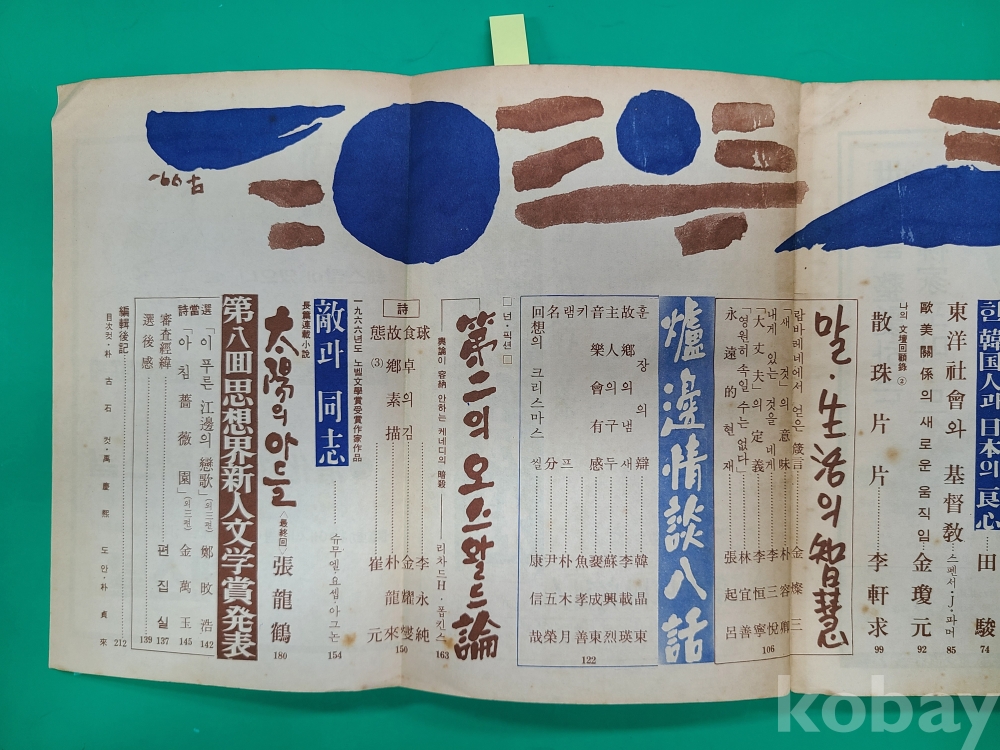 한 韓国人과 日本의 良心 … 田駿 74
東洋社會와 基督敎 … 스펜서·J·파머 85
歐美關係의 새로운 움직임 … 金瓊元 92
나의 文壇回顧錄 ②
散珠片片 … 李軒求 99
말·生活의 智慧
람바레네에서 얻은 箴言 … 金燦三
「새것」의 意味 … 朴容卿
내게 있는 것을 네게 … 李三悅
「大丈夫」의 定義 … 李恒寧
「영원히 속일 수는 없다」 … 林宜善
永遠的 現在 … 張起呂
106
爐邊情談八話
훈장의 辯 … 韓晶東
故鄕의 냄새 … 李載瑛
主人의 구두 … 蘇興烈
音樂會有感 … 裵成東
키 … 魚孝善
램프 … 朴木月
名分 … 尹五榮
回想의 크리스마스 씰 … 康信哉
122
넌·픽션
第二의 오스왈드論
輿論이 容納 안하는 케네디의 暗殺 … 리차드H·폽킨스 163
詩
球 … 李永純
食卓의 김 … 金耀燮
故鄕素描 … 朴龍來
態(3) … 崔元
150
一九六六年도 노벨文學賞受賞作家作品
敵과 同志 … 슈무엘·요셉·아그논 154
長篇連載小說
太陽의 아들 〈最終回〉 張龍鶴 180
第八回思想界新人文学賞発表
當選詩
「이 푸른 江邊의 戀歌」(외드편) 鄭旼浩 142
「아침 薔薇園」(외드편) 金萬玉 145
審査經緯 … 편집실 137
選後感 139
編輯後記 … 212
目次컷·朴古石 컷·禹慶熙 도안·朴貞來
古 66.
kobay